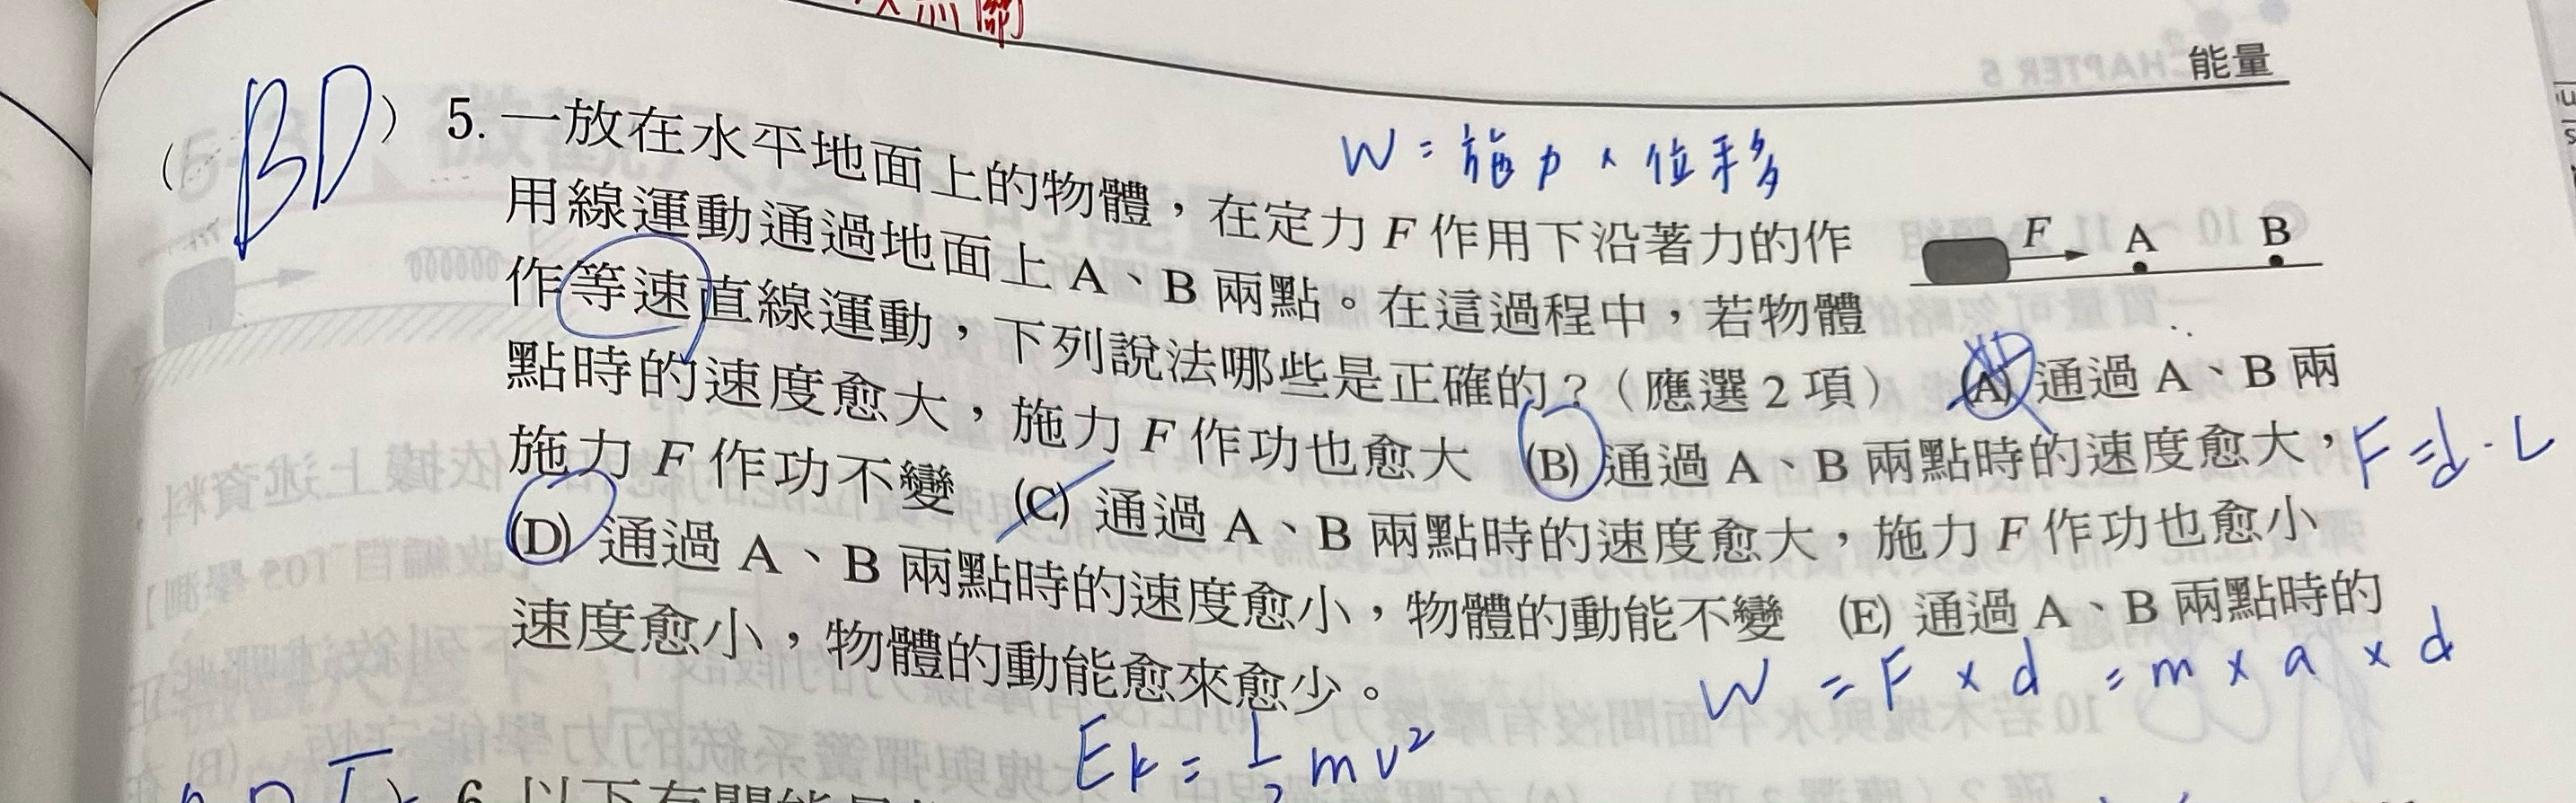 能量
BD
W = 施力 × 位移
( ) 5. 一放在水平地面上的物體，在定力 F 作用下沿著力的作
用線運動通過地面上 A、B 兩點。在這過程中，若物體
作等速直線運動，下列說法哪些是正確的？（應選 2 項） (A) 通過 A、B 兩
點時的速度愈大，施力 F 作功也愈大 (B) 通過 A、B 兩點時的速度愈大，
施力 F 作功不變 (C) 通過 A、B 兩點時的速度愈大，施力 F 作功也愈小
(D) 通過 A、B 兩點時的速度愈小，物體的動能不變 (E) 通過 A、B 兩點時的
速度愈小，物體的動能愈來愈少。
F A B
W = F × d = m × a × d
Ek = 1/2 mv²
6.